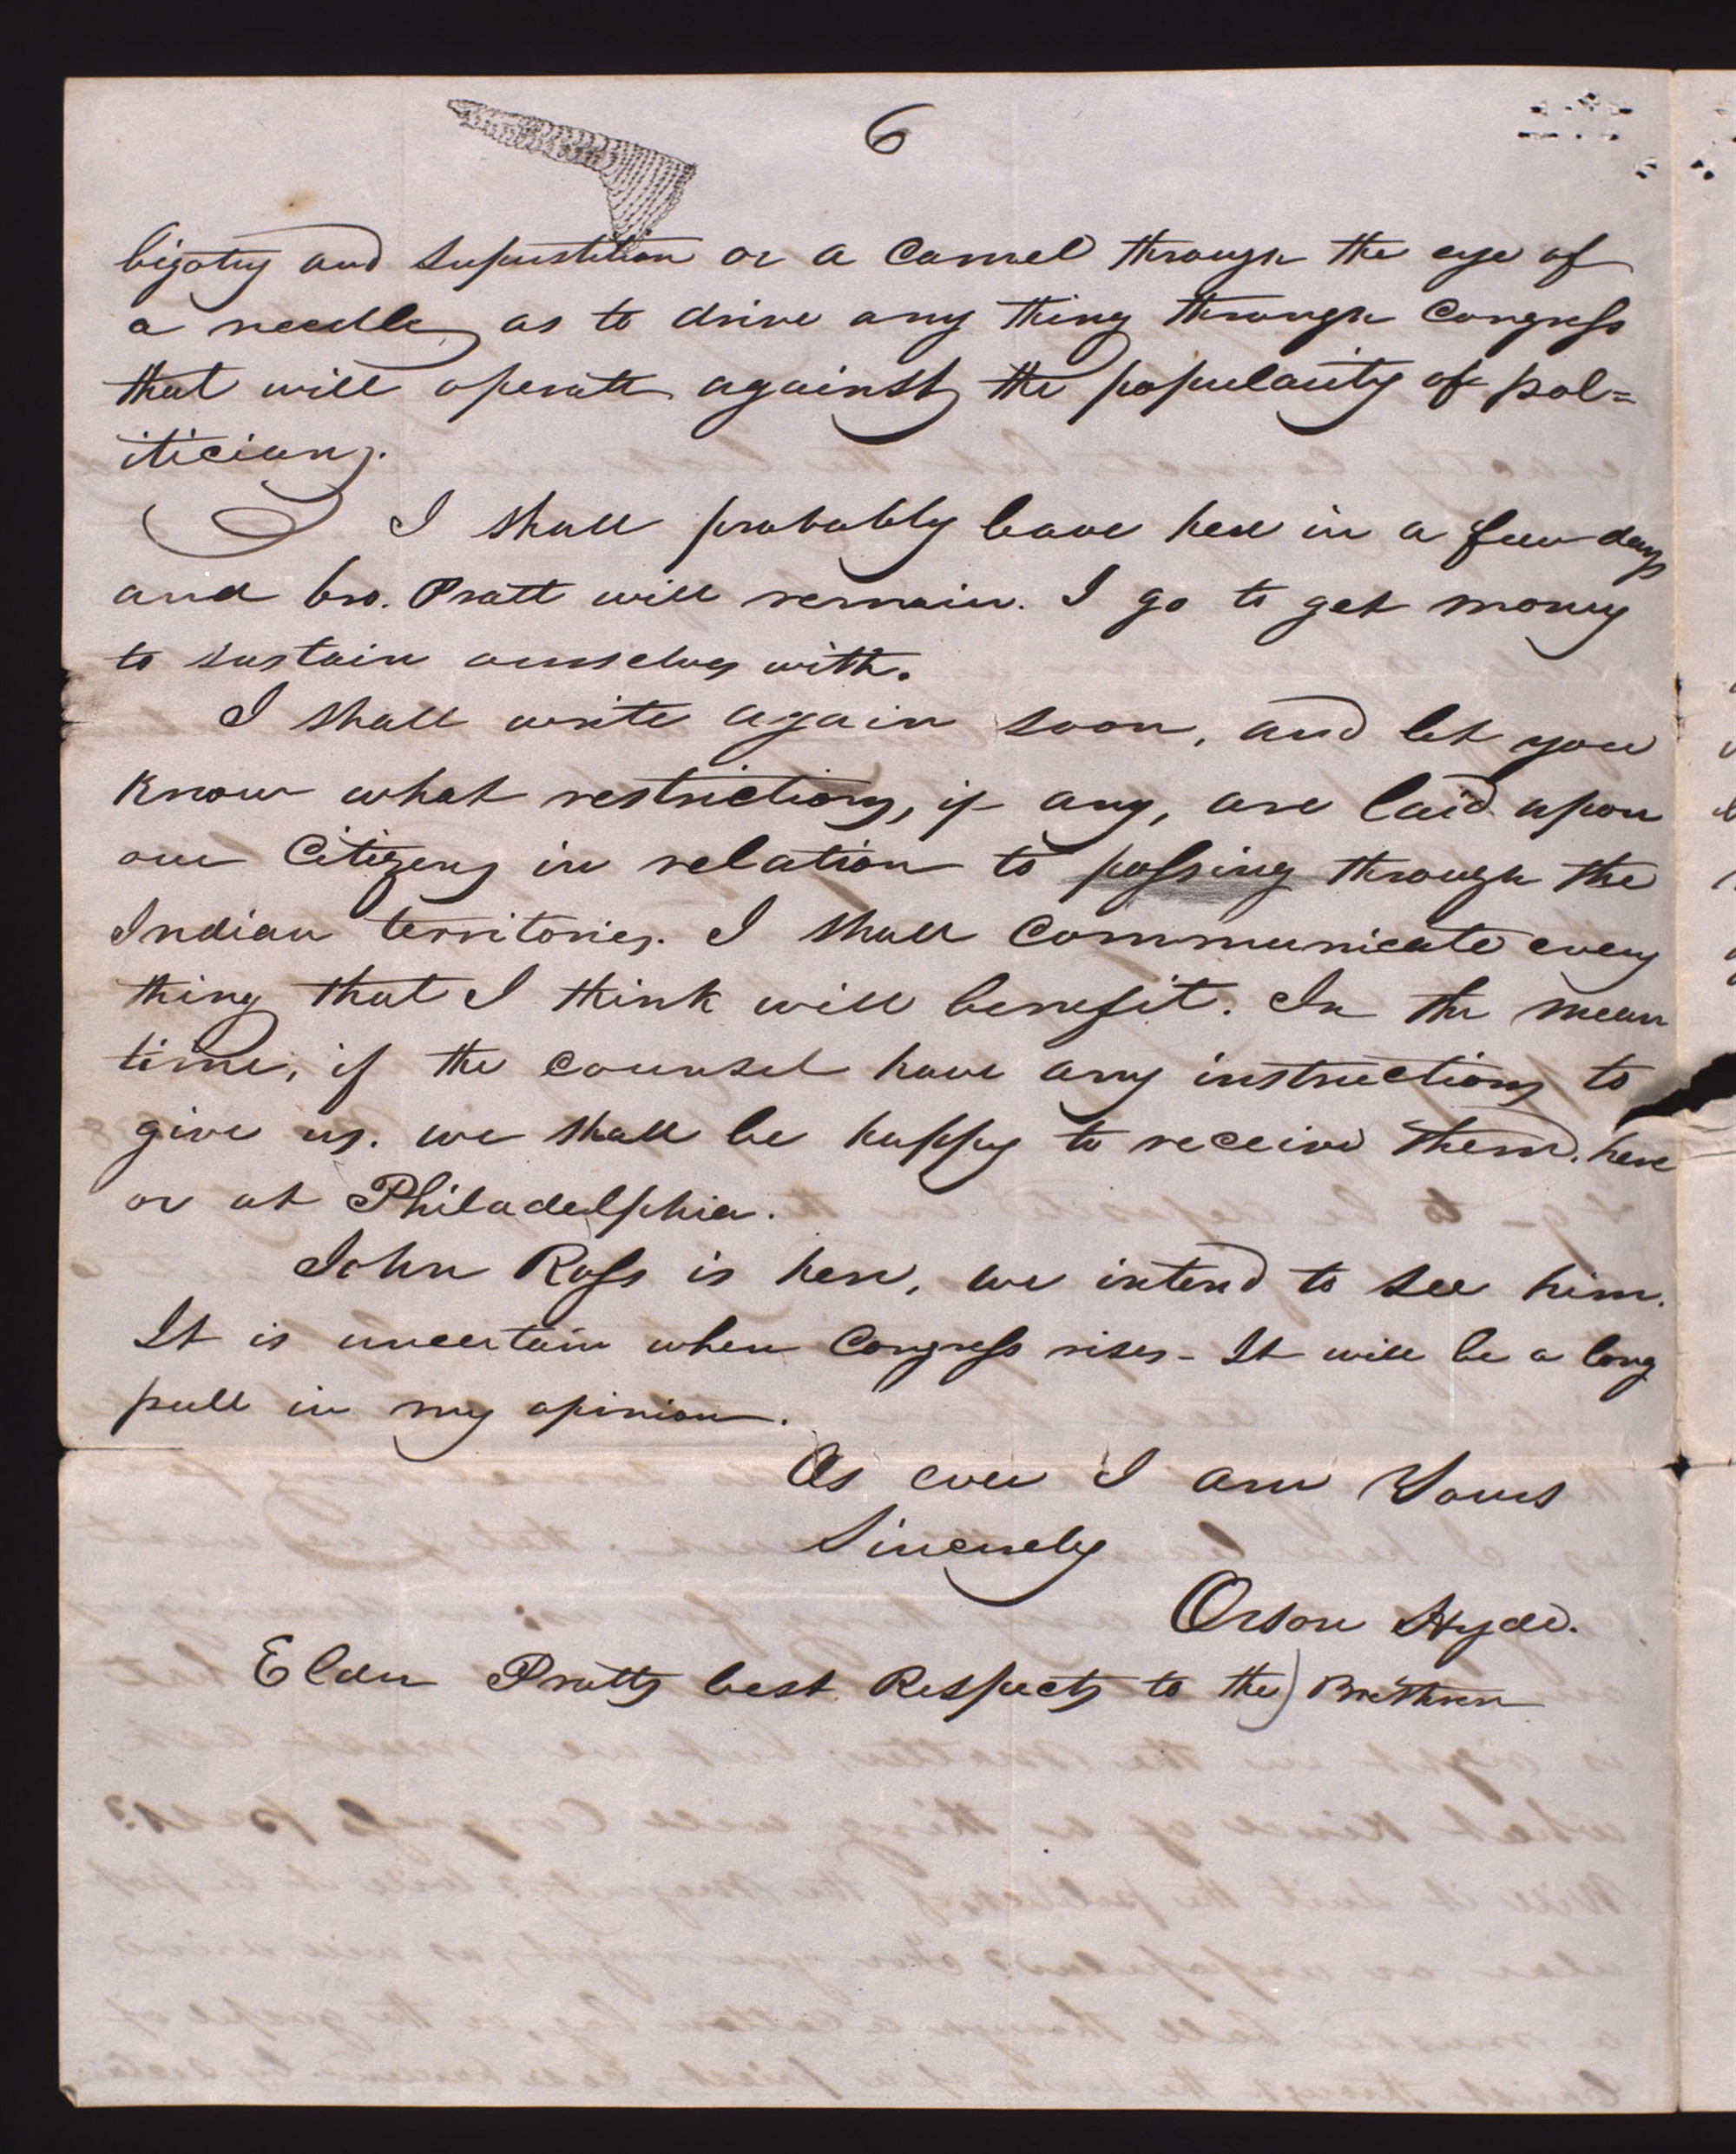 6
bigotry and Superstition or a Camel through the eye of
a needle, as to drive any thing through Congress
that will operate against the popularity of pol=
iticians.
I shall probably leave here in a few days
and bro. Pratt will remain. I go to get money
to sustain ourselves with.
I shall write again soon, and let you
know what restrictions, if any, are laid upon
our Citizens in relation to passing through the
Indian territories. I shall Communicate every
thing that I think will benefit. In the mean
time, if the counsel have any instructions to
give us. we shall be happy to receive them. here
or at Philadelphia.
John Ross is here, we intend to see him.
It is uncertain when Congress rises - It will be a long
pull in my opinion.
As ever I am Yours
Sincerely
Orson Hyde.
Elder Pratts best Respects to the) Brethren